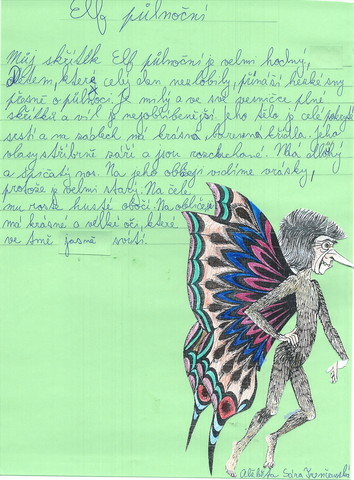 Elf půlnoční
Můj skřítek Elf půlnoční je velmi hodný.
Dětem, které celý den nezlobily, přináší hezké sny
přesně o půlnoci. Je milý a ve své vesničce plné
skřítků a víl je nejoblíbenější. Jeho tělo je celé pokryté
srstí a na zádech má krásná barevná křídla. Jeho
vlasy stříbrně září a jsou rozcuchané. Má dlouhý
a špičatý nos. Na jeho obličeji vidíme vrásky,
protože je velmi starý. Na čele
mu roste husté obočí. Na obličeji
má krásné a velké oči, které
ve tmě jasně svítí.
Alžběta Sára